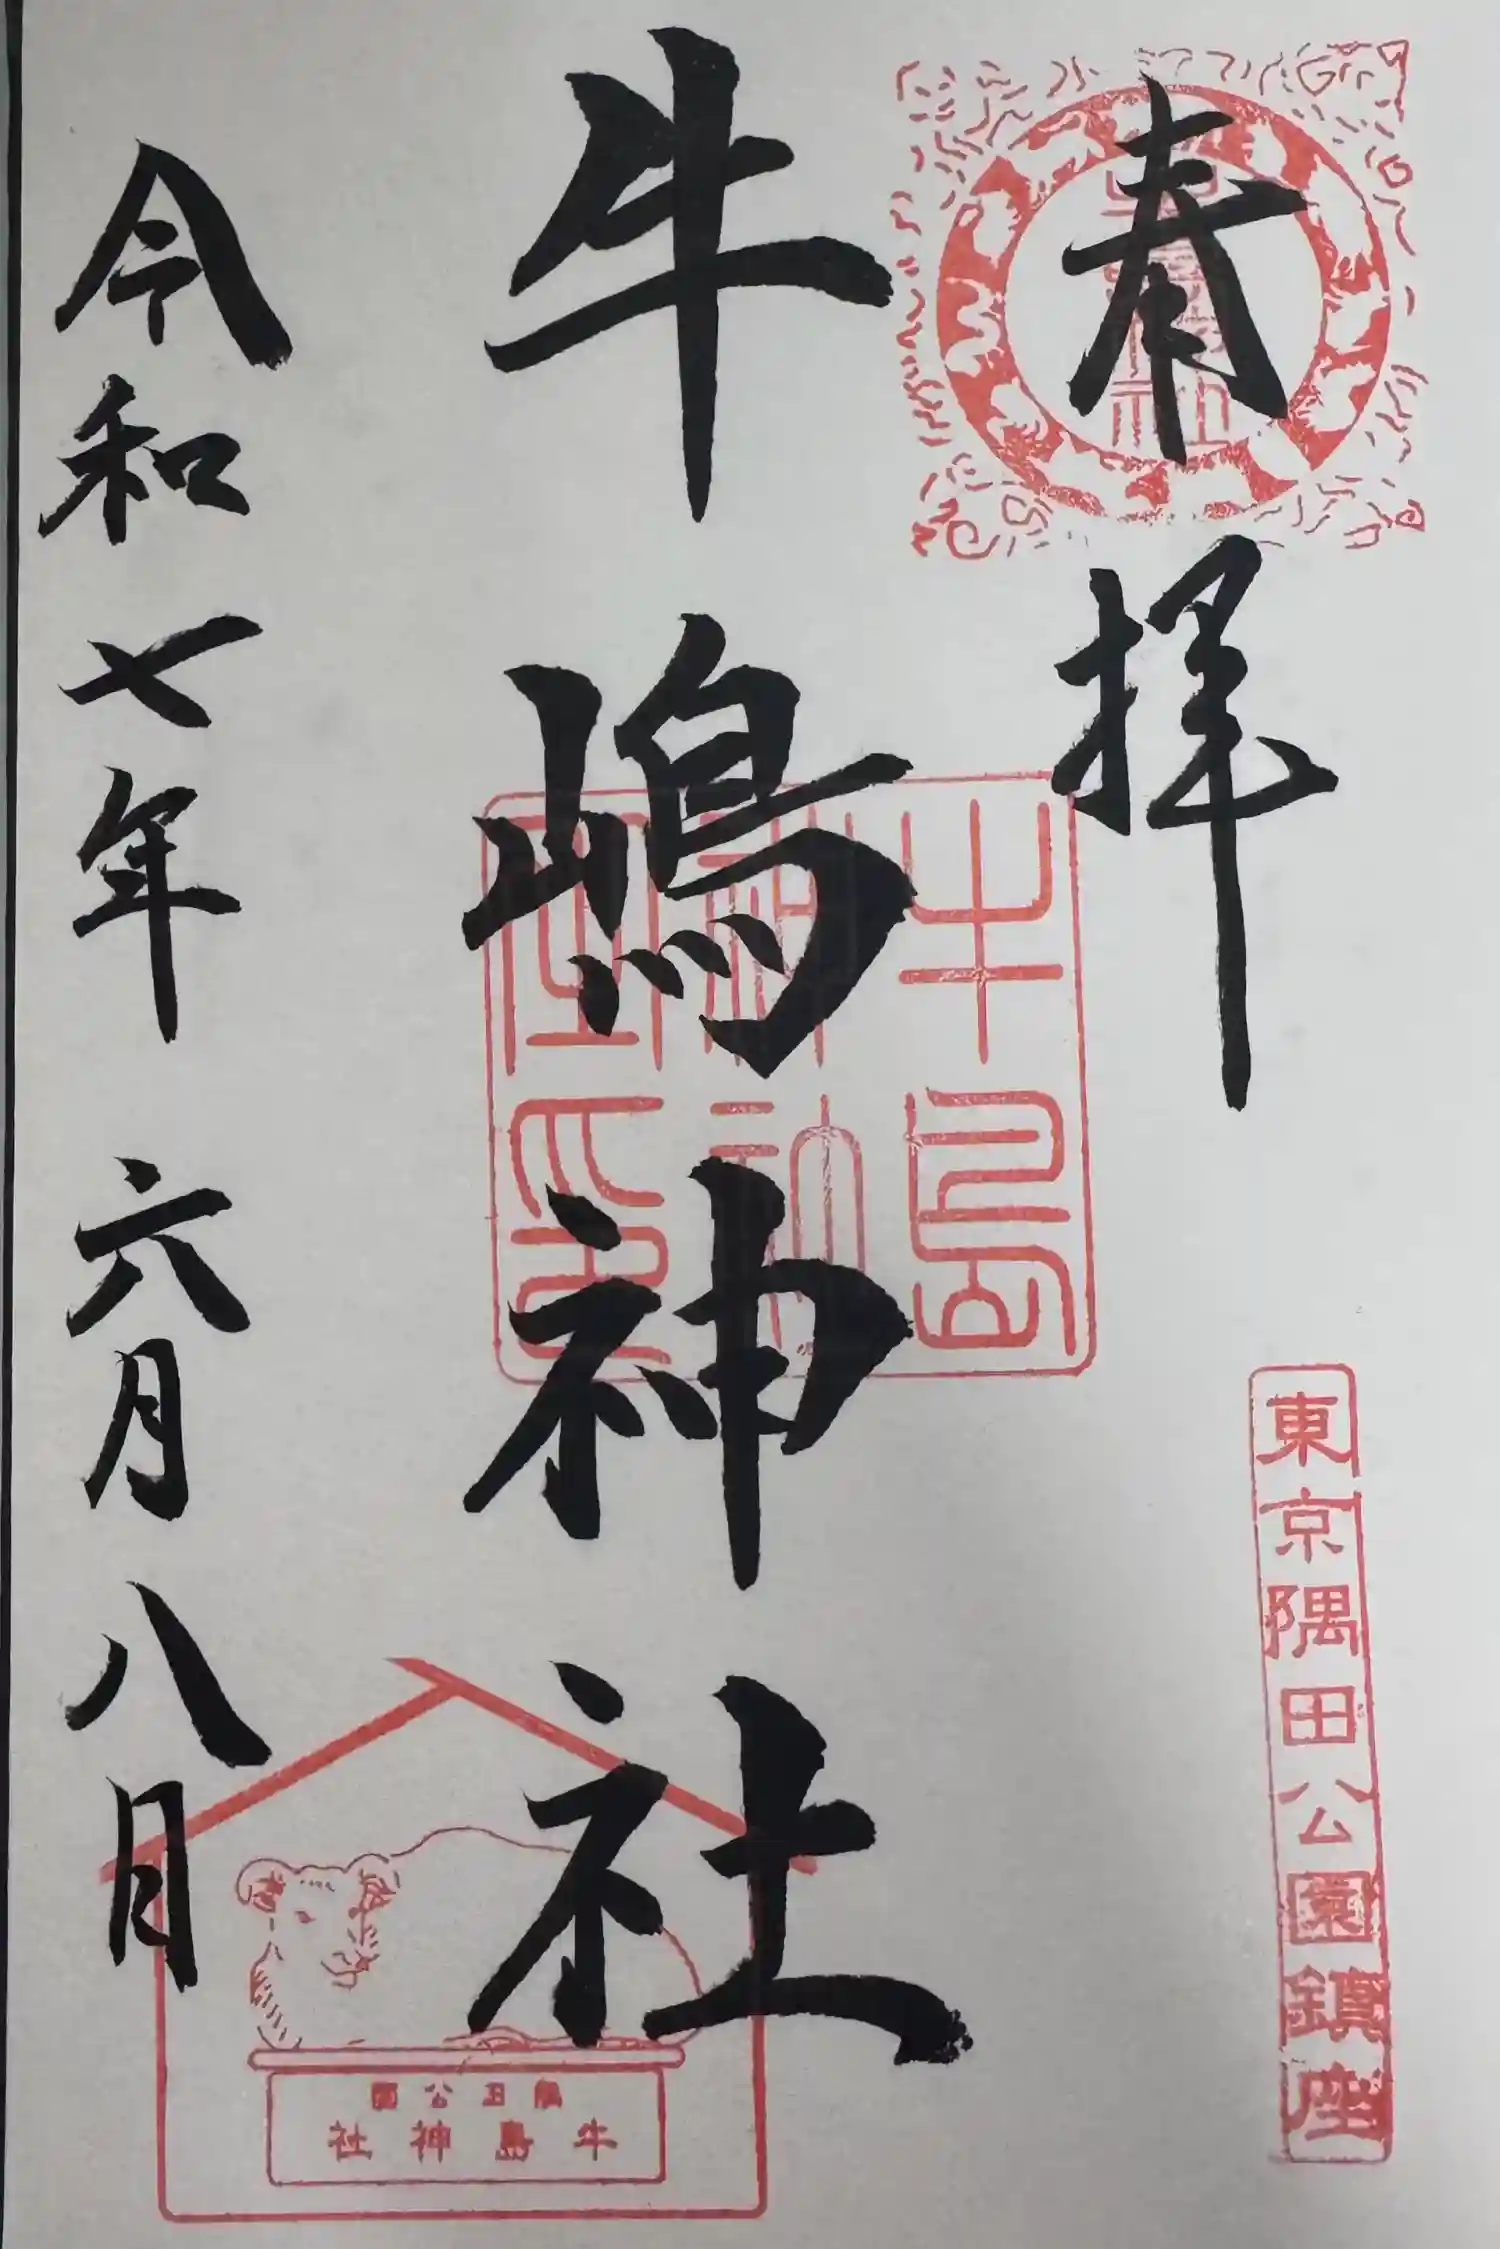 奉拝
東京隅田公園鎮座
牛嶋神社
牛島
神社
令和七年六月八日
隅田公園
牛島神社